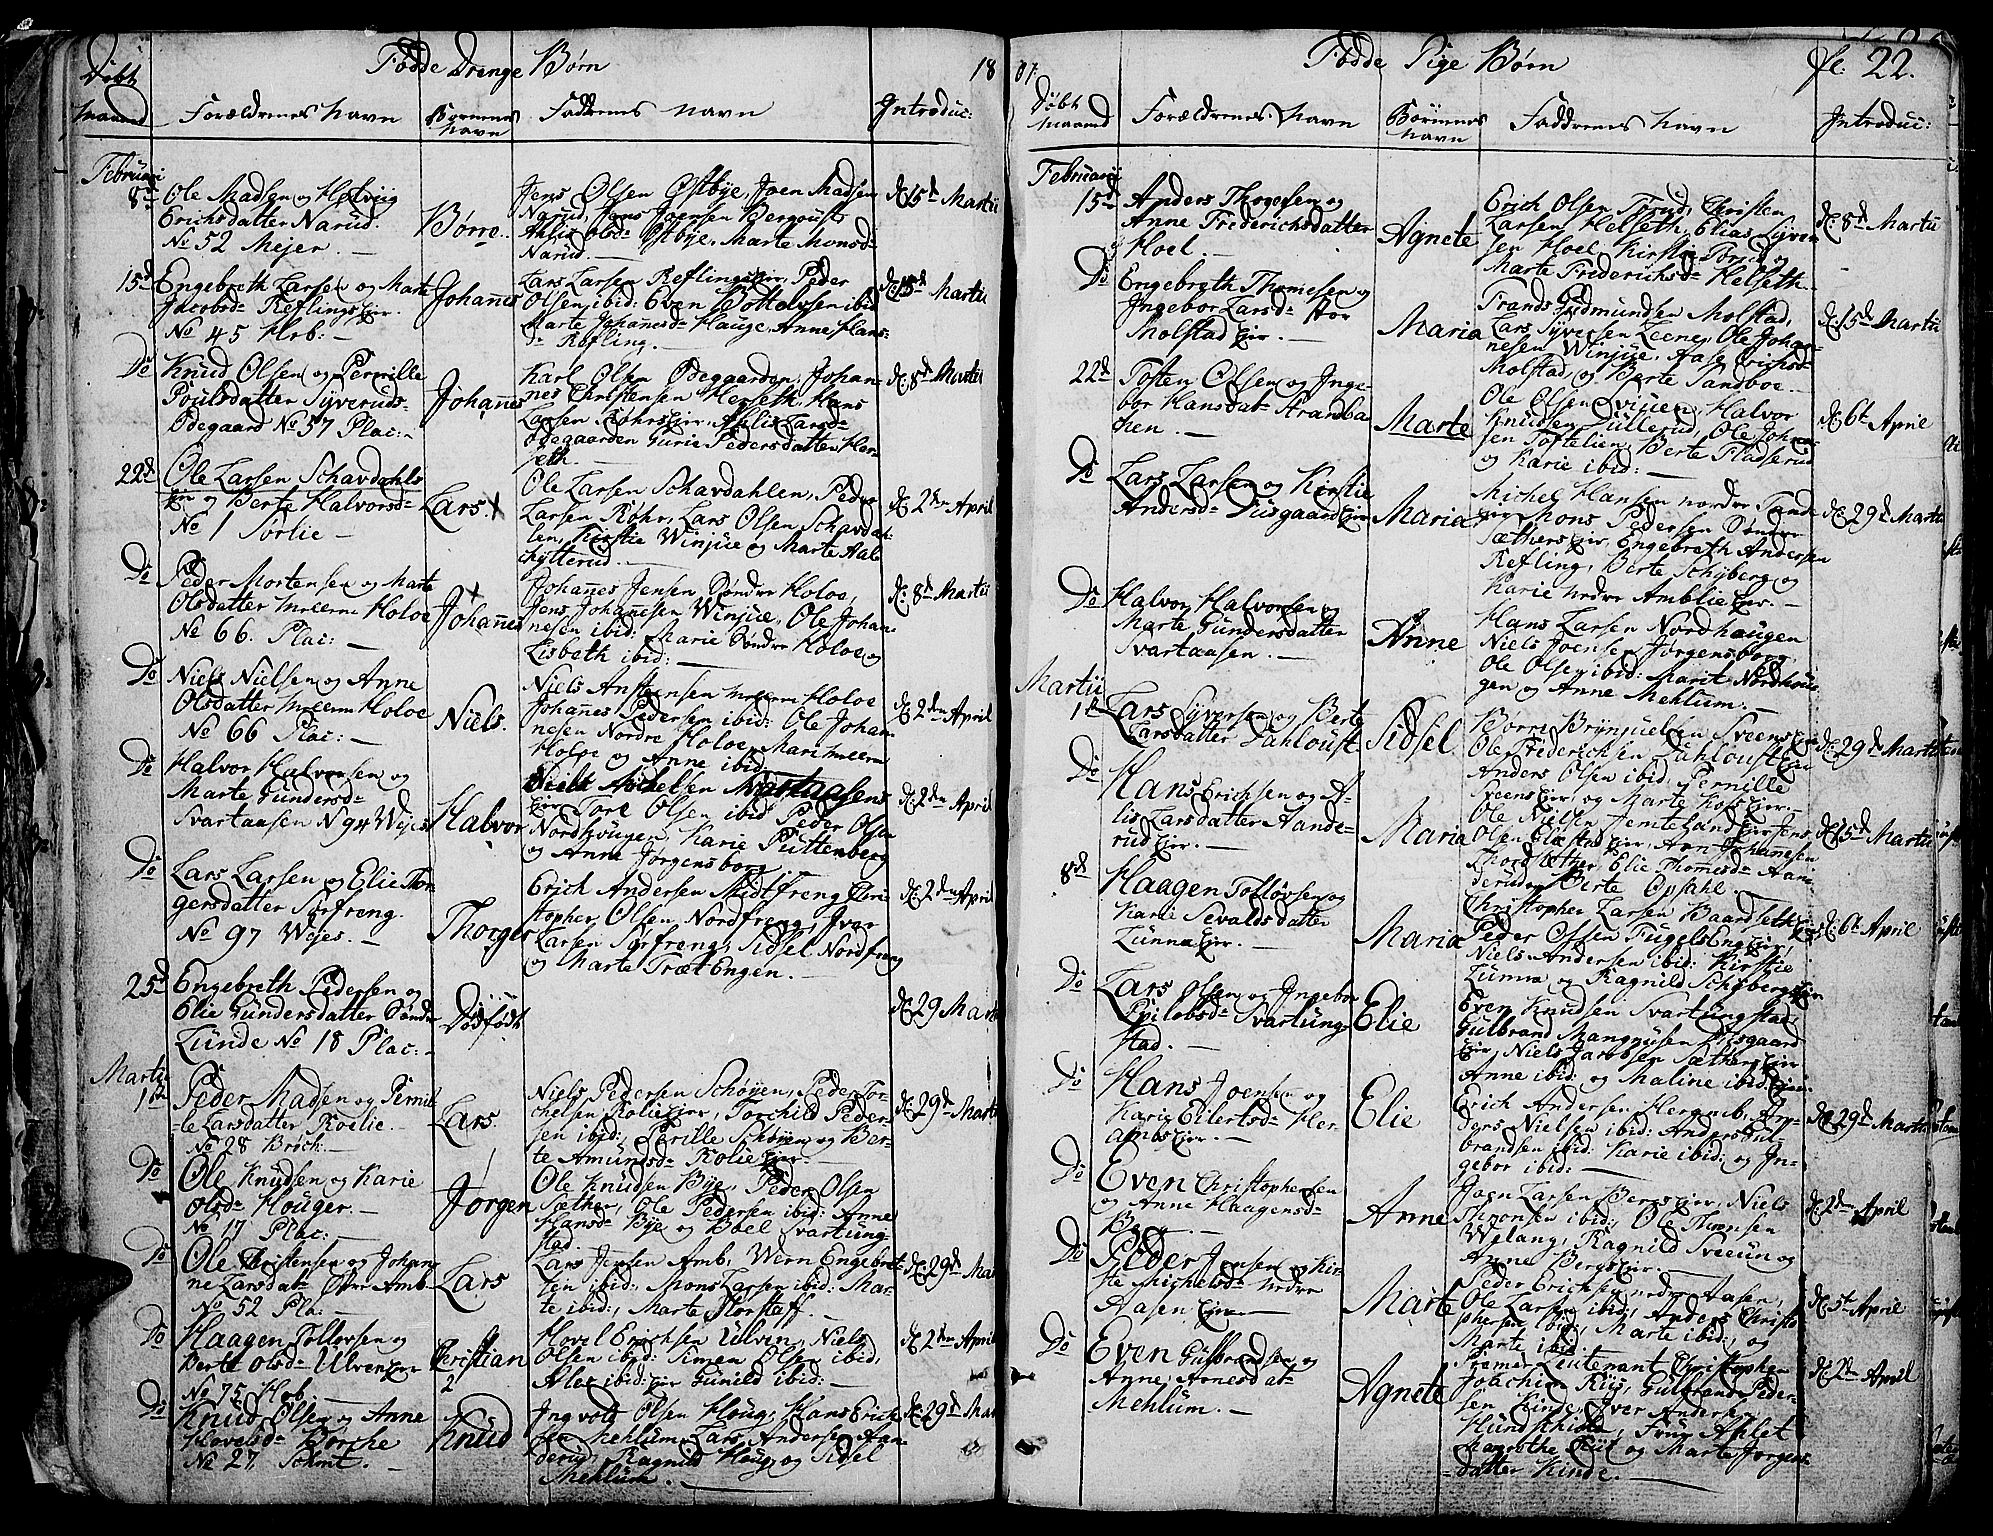 Fødde Drenge Børn 18
Døbt
Maaned
Forældrenes Navn
Børnenes
Navn
Faddrenes Navn
Introduc:
Februari
8d
Ole Madsen og Helvig
Erichsdatter Narud.
No 52 Mejer
Børre
Jens Olsen Østbye, Joen Madsen
Narud, Jens Joensen Bergoust
Ahlis Olsd Østbye, Marte Monsd
Narud.
d 15d Martii
15d
Engebreth Larsen og Marte
Jacobsd Reflings Eie.
No 45 Hob:
Johannes
Lars Larsen Reflings Eie, Peder
Olsen ibid: Even Bottolvsen ibid
Marte Johanesd Hauge, Anne Hans-
d Refling.
d 15d Martii
Do
Knud Olsen og Pernille
Poulsdatter Syveruds-
Ødegaard No 57 Plac:
Johannes
Karl Olsen Ødegaarden, Johan-
nes Christensen Herseth, Hans
Larsen Røhrs Eie, Ahlis Larsd
Ødegaarden Gurie Pedersdatter Her-
seth.
d: 8d Martii
22d
Ole Larsen Schavdahls
Eie og Berte Halvorsd
No 1 Sørlie
Lars
Ole Larsen Schavdahlen, Peder
Larsen Røhr, Lars Olsen Schavdah-
len, Kirstie Winjue og Marte Aale
hytterud.
d: 2den April
Do
Peder Mortensen og Marte
Olsdatter Meeem Holoe
No 66. Plac:
Johannes
Johannes Jensen Søndre Holoe,
Jens Johannesen Winjue, Ole Johan-
nesen ibid: Marie Søndre Holoe og
Lisbeth ibid:
d: 8d Martii
Do
Niels Nielsen og Anne
Olsdatter Meeem Holoe
No 66 Plac:
Niels.
Niels Anstensen Meeem Holoe
Johannes Pedersen ibid: Ole Johan-
nesen Nordre Holoe, Mari Meeem
Holoe og Anne ibid:
d: 2den April
Do
Halvor Halvorsen og
Marte Gundersd
Svartaasen No 94 Wejes
Halvor
Niels Michelsen Svartaasens
Eie Tore Olsen ibid Peder Olsen
Nordhougen, Karie Puttenberg
og Anne Jørgensborg
d: 2den April
Do
Lars Larsen og Elie Thor-
gersdatter Sørfreng.
No 97 Wejes.
Thorger
Erich Andersen Midtfreng, Chri-
stopher Olsen Nordfreng, Iver
Larsen Sørfreng, Sidsel Nordfreng
og Marte Træt Engen.
d: 2den April
25d
Engebreth Pedersen og
Elie Gundersdatter Søndre
Lunde No 18 Plac:
Dødfødt
d: 29 Martii
Martii
1ste
Peder Madsen og Pernil-
le Larsdatter Roelie.
No 28 Broch.
Lars
Niels Pedersen Schøyen, Peder Tor-
chelsen Rolie Eie, Torchild Peder-
sen ibid:, Perille Schøyen og Ber-
te Amundsd Rolie Eie.
d: 29d Martii
Do
Ole Knudsen og Karie
Olsd Houger.
No 17 Plac:
Jørgen
Ole Knudsen Bye, Peder Olsen
Sæther, Ole Pedersen ibid: Anne
Hansd Bye og Boel Svartung-
stad.
Do
Ole Christensen og Johan-
ne Larsdat Amb
No 52 Pla:
Lars
Lars Jensen Amb, Wern Engebret-
sen ibid: Mons Larsen ibid: Mar-
te ibid:, Marte Horstaff.
d: 29d Mar
Do
Haagen Tollovsen og
Berte Olsd Ulven Eie
No 75 Hob.
Christian
2
Hovel Erichsen Ulven, Niels
Olsen ibid: Simen Olsen ibid,
Aloe ibid: Eie Gunild ibid:
d: 2den April
Do
Knud Olsen og Anne
Hovelsd Borche
No 27, Schmt.
Knud
Ingvold Olsen Houg, Hans Erich-
sen Mehlum, Lars Andersen Aan-
derud, Ragnild Houg og Sidsel
Mehlum.
d: 29d Mar
07. Fødde Pige Børn fl: 22.
Døbt
Maaned
Forældrenes Navn
Børnenes
Navn
Faddrenes Navn
Introduc:
Februarii
15d
Anders Thogesen og
Anne Friderichsdatter
Hoel.
Agnete
Erich Olsen Trud, Christen
Larsen Helseth, Elias Syver-
sen Hoel, Kirstie Torud og
Marte Friderichsd Helseth.
d: 8d Martii
Do
Engebreth Thomesen og
Ingebor Larsd Stor
Molstad Eie.
Maria
Frands Gudmundsen Molstad,
Lars Syversen Leene, Ole Johan-
nesen Winjue, Aase Erichsd
Molstad, og Berte Sandboe.
d: 15d Martii
22d
Tosten Olsen og Inge-
bor Hansdat Strandba
chen.
Marte
Ole Olsen Sviuen, Halvor
Knudsen Dullerud, Ole Johne
sen Toftelien, Berte Fladserud
og Karie ibid:
d: 6te April
Do
Lars Larsen og Kirstie
Andersd Dusgaard Eie
Maria
Michel Hansen nordre Sande
Eie Mons Pedersen Søndre
Sæthers Eie, Engebreth Andersen
Refling, Berte Schyberg og
Karie Nedre Amblie Eie.
d: 29d Martii
Do
Halvor Halvorsen og
Marte Gundersdatter
Svartaasen.
Anne
Hans Larsen Nordhaugen
Niels Joensen Jørgensborg,
Ole Olsen ibid: Marit Nordhou-
gen og Anne Mehlum.
Martii
1ste
Lars Syversen og Berte
Larsdatter Dahloust
Sidsel
Børre Brynjuelsen Sveens Eie
Ole Friderichsen Dahloust Eie
Anders Olsen ibid: Pernille
Sveens Eie, og Marte Hofs Eie.
d: 29d Martii
Do
Hans Erichsen og A-
lis Larsdatter Aande-
rud Eie.
Maria
Ole Nielsen Jemteland Eie Jens
Olsen Elæstad Eie, Aon Johannesen
Thordsæther, Elie Thomesd Aan-
derud og Berte Opdahl.
d: 15d Martii
8d
Haagen Tolløvsen og
Karie Sevaldsdatter
Lunna Eie.
Maria
Christopher Larsen Baardseth Eie
Peder Olsen Fugels Eng Eie,
Niels Andersen ibid: Kirstie
Lunna og Ragnild Schybergs Eie
d: 6te April
Do
Lars Olsen og Ingebor
Svartung-
stad.
Elie
Even Knudsen Svartungstad,
Gulbrand Mangnusen Disgaard
Eie, Niels Jacobsen Sæthers Eie
Anne ibid: og Maline ibid Eie
Do
Hans Joensen og
Karie Eilertsd Her-
ambs Eie.
Elie
Erich Andersen Heramb, An-
ders Nielsen ibid: Anders Gul-
brandsen ibid: Karie ibid: og In-
gebor ibid:
d: 29d Martii
Do
Even Christophersen
og Anne Haagensd
Berg.
Anne
Joen Larsen Bergs Eie, Niels
Thronsen ibid:, Ole Thronsen
Welang, Ragnild Sveeun og
Anne Bergs Eie.
d: 2den April
Do
Peder Jensen og Kir-
ste Michelsd Nedre
Aasen Eie.
Marte
Peder Erichsen nedre Aasen,
Ole Larsen ibid:, Anders Christo-
phersen ibid:, Marte ibid:, og
Marte ibid.
d: 5te April
Do
Even Gulbrandsen og
Anne Arnesdat
Mehlum.
Agnete
Premier Lieutenant Christopher
Joachim Riis, Gulbrand Peder-
sen Kinde, Iver Andersen
Hundschiold, Frue Ahlet
Magrethe Riis og Marte Jørgens-
datter Kinde.
d: 2den April